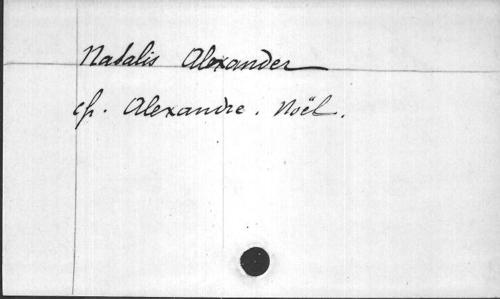 Natalis Alexander
cfr. Alexandre. Noël.